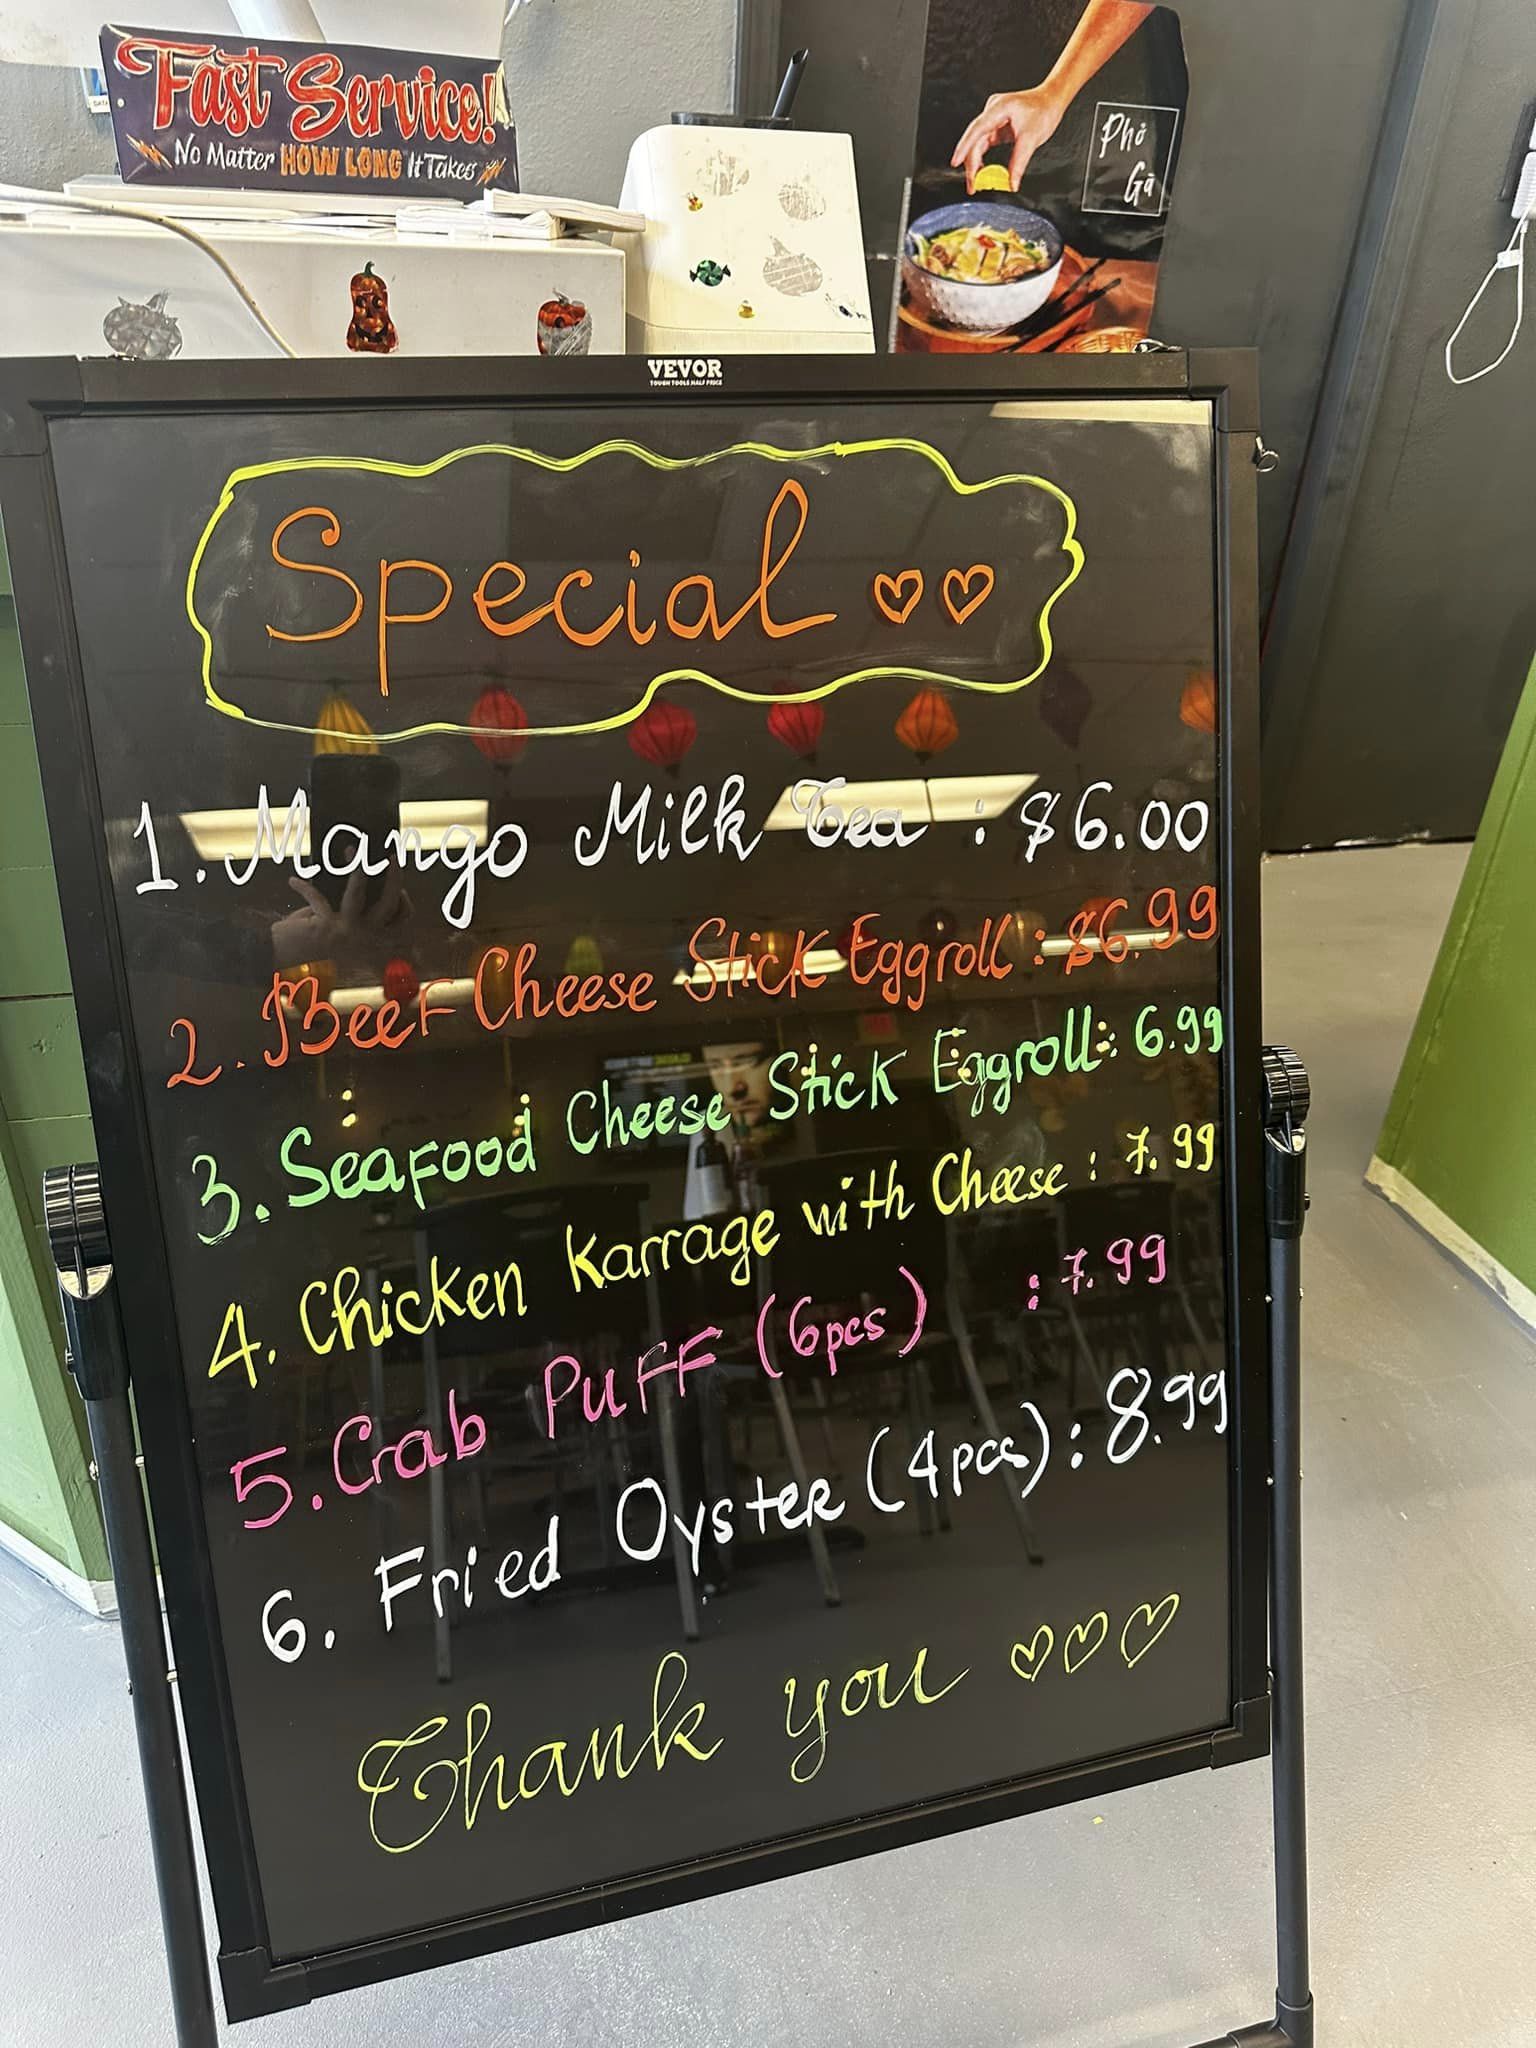 Fast Service!
No Matter HOW LONG It Takes
Phở
Gà
VEVOR
TOUGH TOOLS, HALF PRICE
Special
1. Mango Milk Tea : $6.00
2. Beef Cheese Stick Eggroll : $6.99
3. Seafood Cheese Stick Eggroll : 6.99
4. Chicken Karrage with Cheese : 7.99
5. Crab Puff (6pcs) : 7.99
6. Fried Oyster (4pcs) : 8.99
Thank you